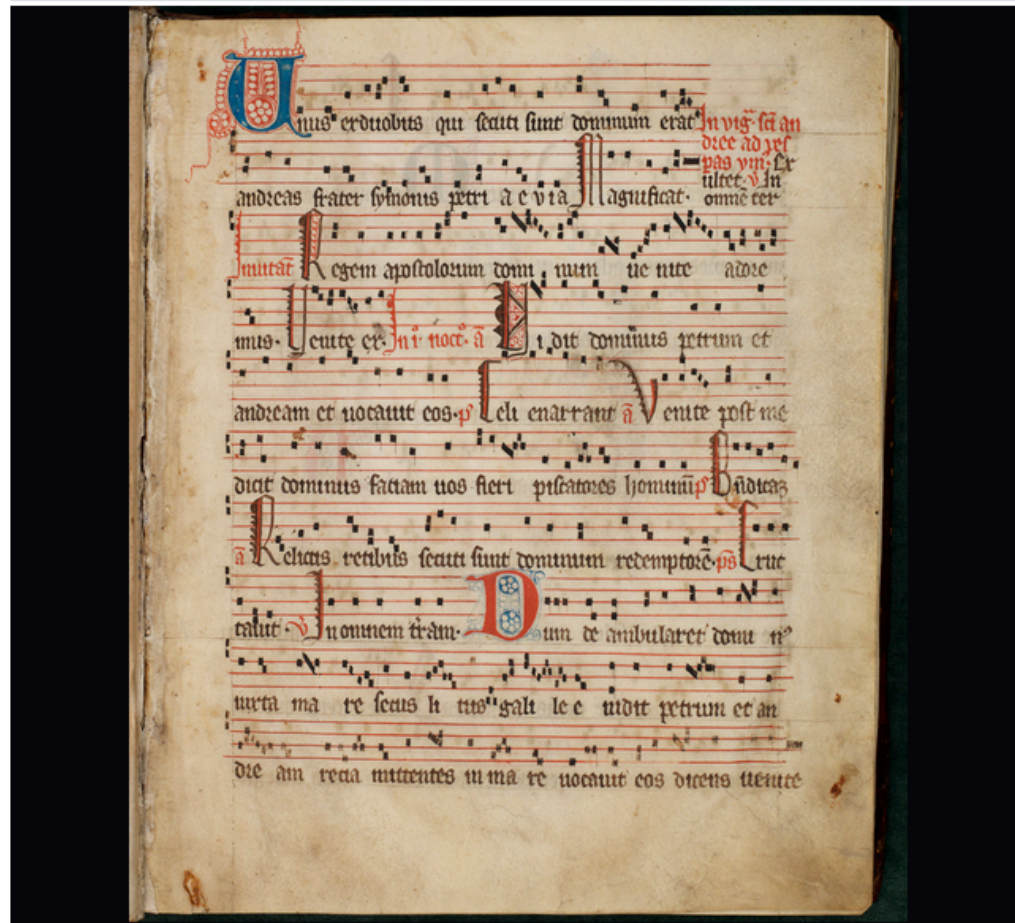 Unus erduobus qui secuti sunt dominum erat In vig. sci an
dree ad ves
pas ymn. Ex
ultet. v In
omnē ter
andreas frater symonis petri a e v i a Magnificat.
Inuitat Regem apostolorum domi num ue nite adore
mus. Uenite ex. In i noct. a Uidit dominus petrum et
andream et uocauit eos. p Celi enarrant a Venite post me
dicit dominus faciam uos fieri piscatores hominū p Bn̄dicaz
a Relictis retibus secuti sunt dominum redemptorē. ps Eruc
tauit. v In omnem trām. Dum de ambularet domi n
iuxta ma re secus li tus gali le e uidit petrum et an
dre am recia mittentes in ma re uocauit eos dicens uenite